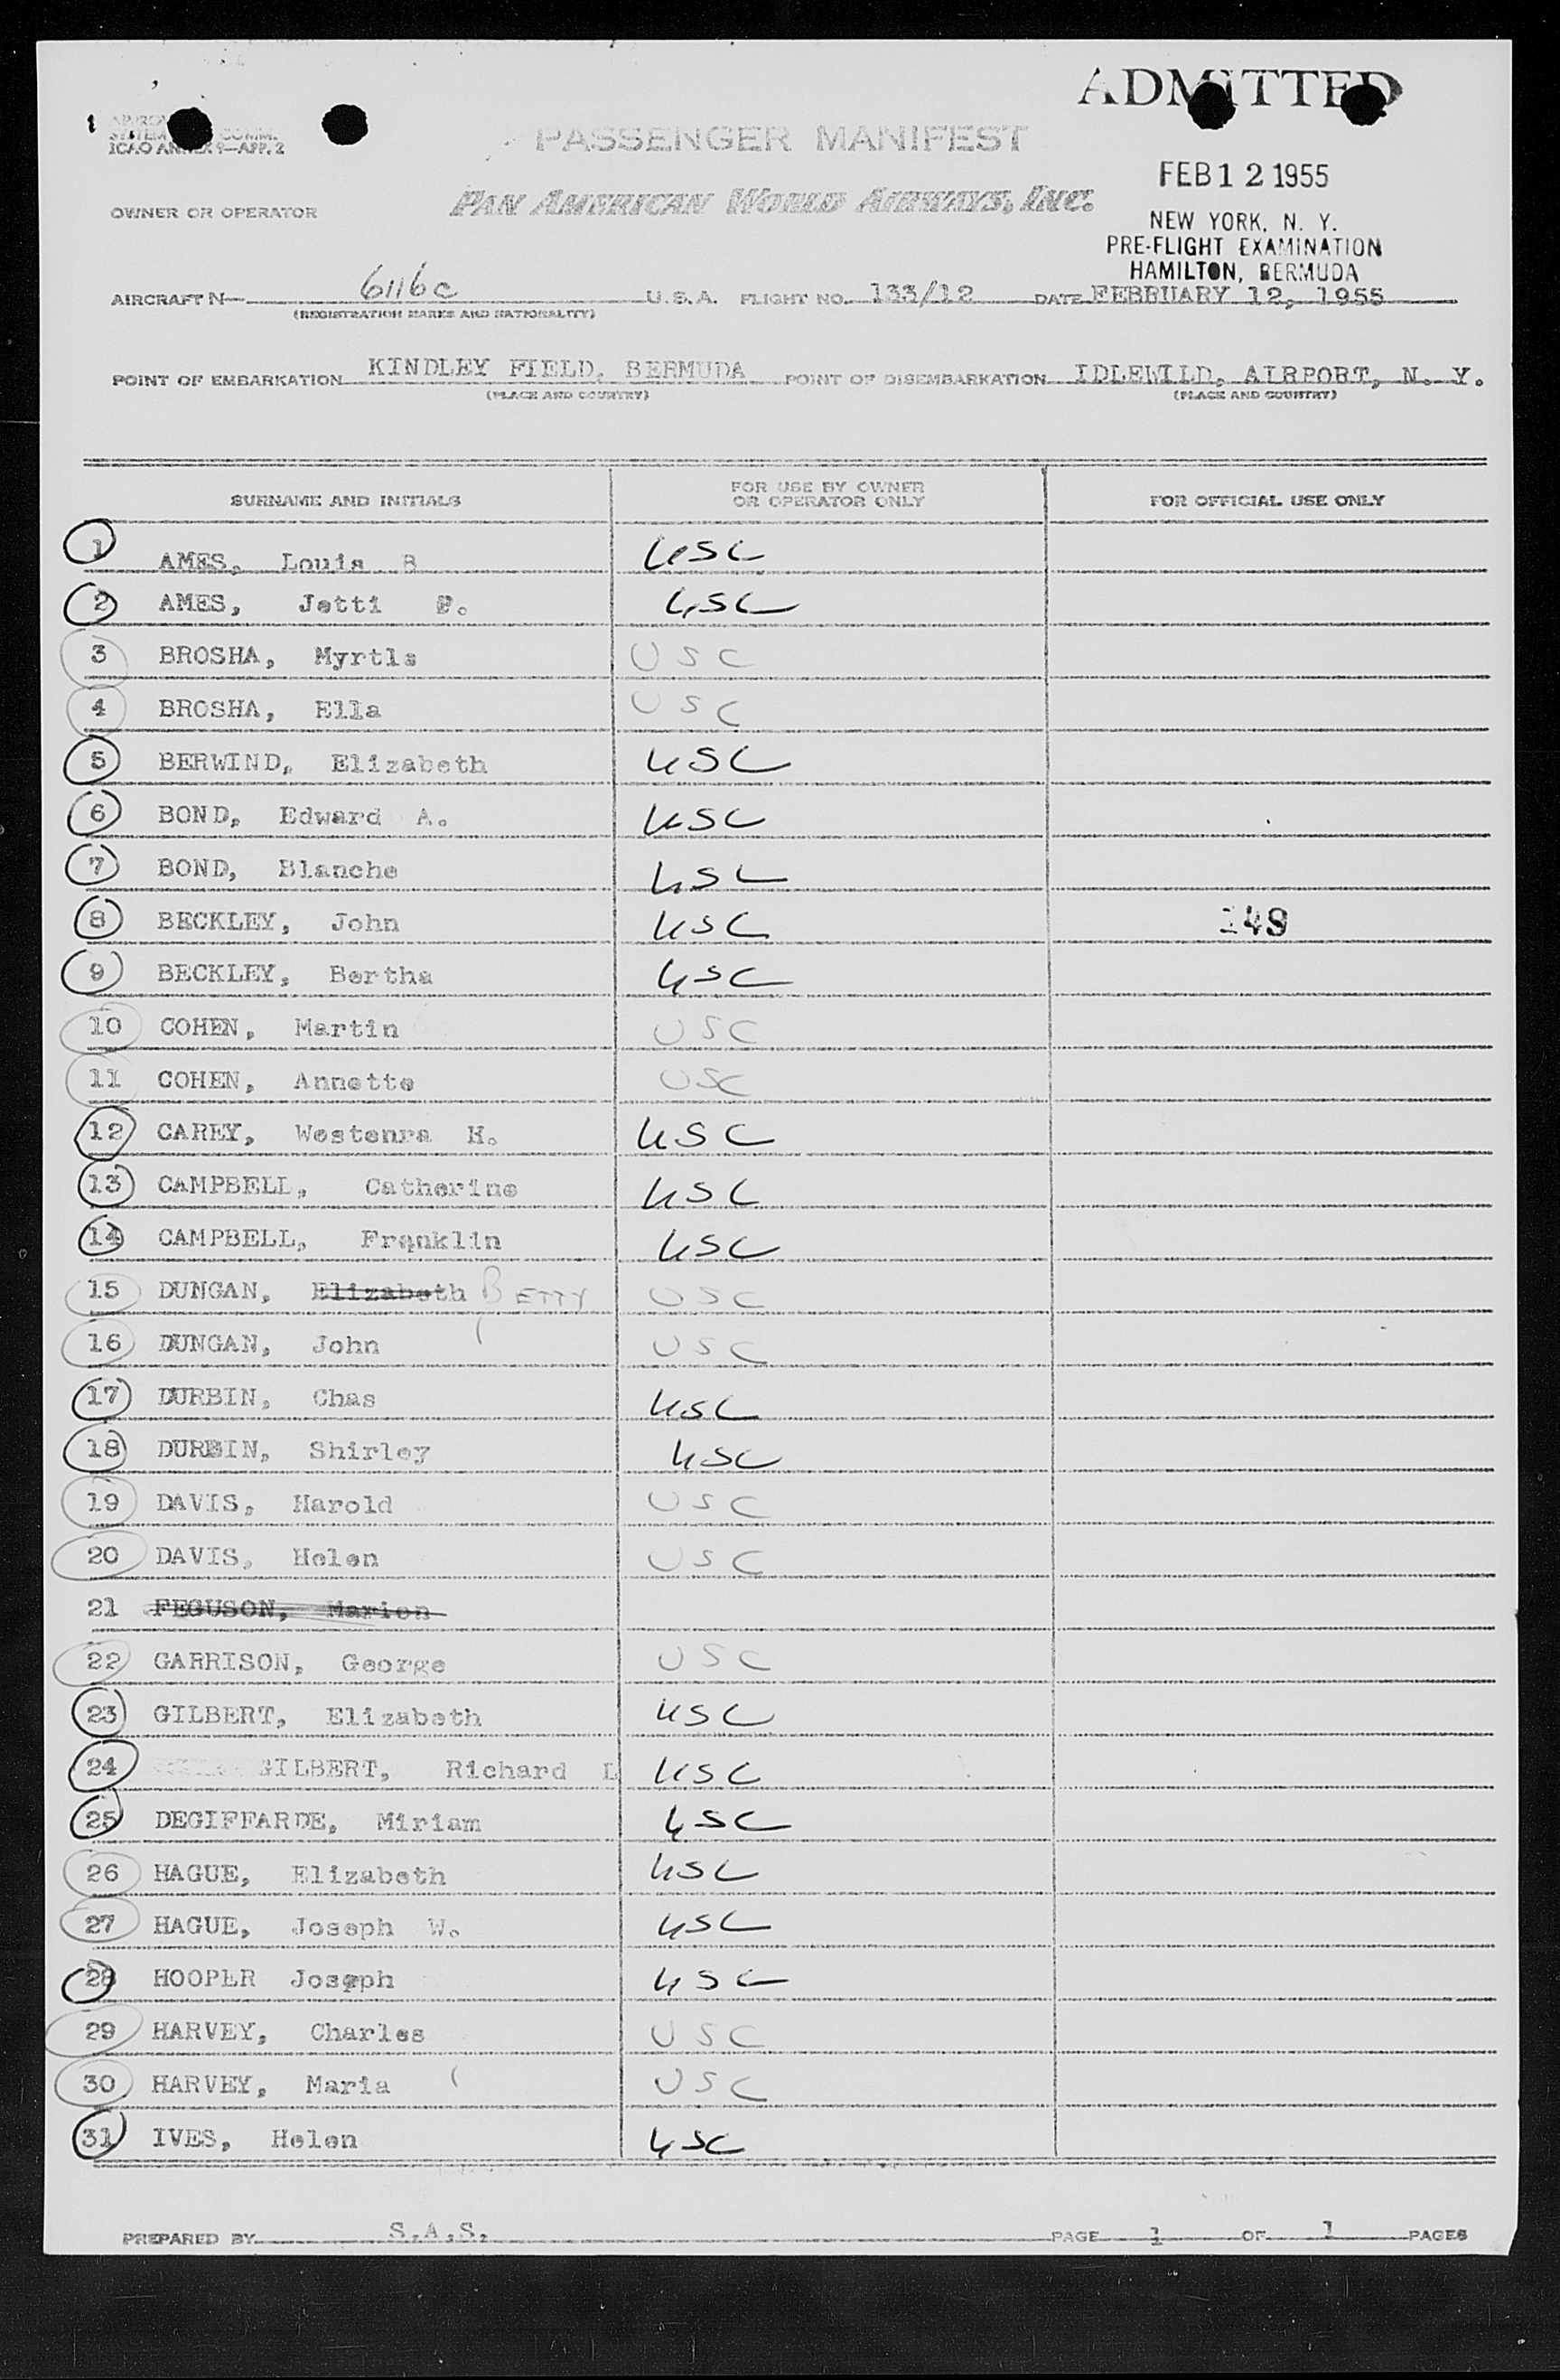 ADMITTED
ICAO ANNEX 9—APP. 2
PASSENGER MANIFEST
FEB 1 2 1955
OWNER OR OPERATOR PAN AMERICAN WORLD AIRWAYS, INC.
NEW YORK, N. Y.
PRE-FLIGHT EXAMINATION
HAMILTON, BERMUDA
AIRCRAFT N— 6116c U. S. A. FLIGHT NO. 133/12 DATE FEBRUARY 12, 1955
(REGISTRATION MARKS AND NATIONALITY)
POINT OF EMBARKATION KINDLEY FIELD, BERMUDA POINT OF DISEMBARKATION IDLEWILD, AIRPORT, N. Y.
(PLACE AND COUNTRY) (PLACE AND COUNTRY)
SURNAME AND INITIALS FOR USE BY OWNER OR OPERATOR ONLY FOR OFFICIAL USE ONLY
1 AMES, Louis B USC
2 AMES, Jetti P. USC
3 BROSHA, Myrtle USC
4 BROSHA, Ella USC
5 BERWIND, Elizabeth USC
6 BOND, Edward A. USC
7 BOND, Blanche USC
8 BECKLEY, John USC 149
9 BECKLEY, Bertha USC
10 COHEN, Martin USC
11 COHEN, Annette USC
12 CAREY, Westenra H. USC
13 CAMPBELL, Catherine USC
14 CAMPBELL, Franklin USC
15 DUNGAN, Elizabeth BETTY USC
16 DUNGAN, John USC
17 DURBIN, Chas USC
18 DURBIN, Shirley USC
19 DAVIS, Harold USC
20 DAVIS, Helen USC
21 FEGUSON, Marion
22 GARRISON, George USC
23 GILBERT, Elizabeth USC
24 GILBERT, Richard L USC
25 DEGIFFARDE, Miriam USC
26 HAGUE, Elizabeth USC
27 HAGUE, Joseph W. USC
28 HOOPER Joseph USC
29 HARVEY, Charles USC
30 HARVEY, Maria USC
31 IVES, Helen USC
PREPARED BY S.A.S. PAGE 1 OF 1 PAGES